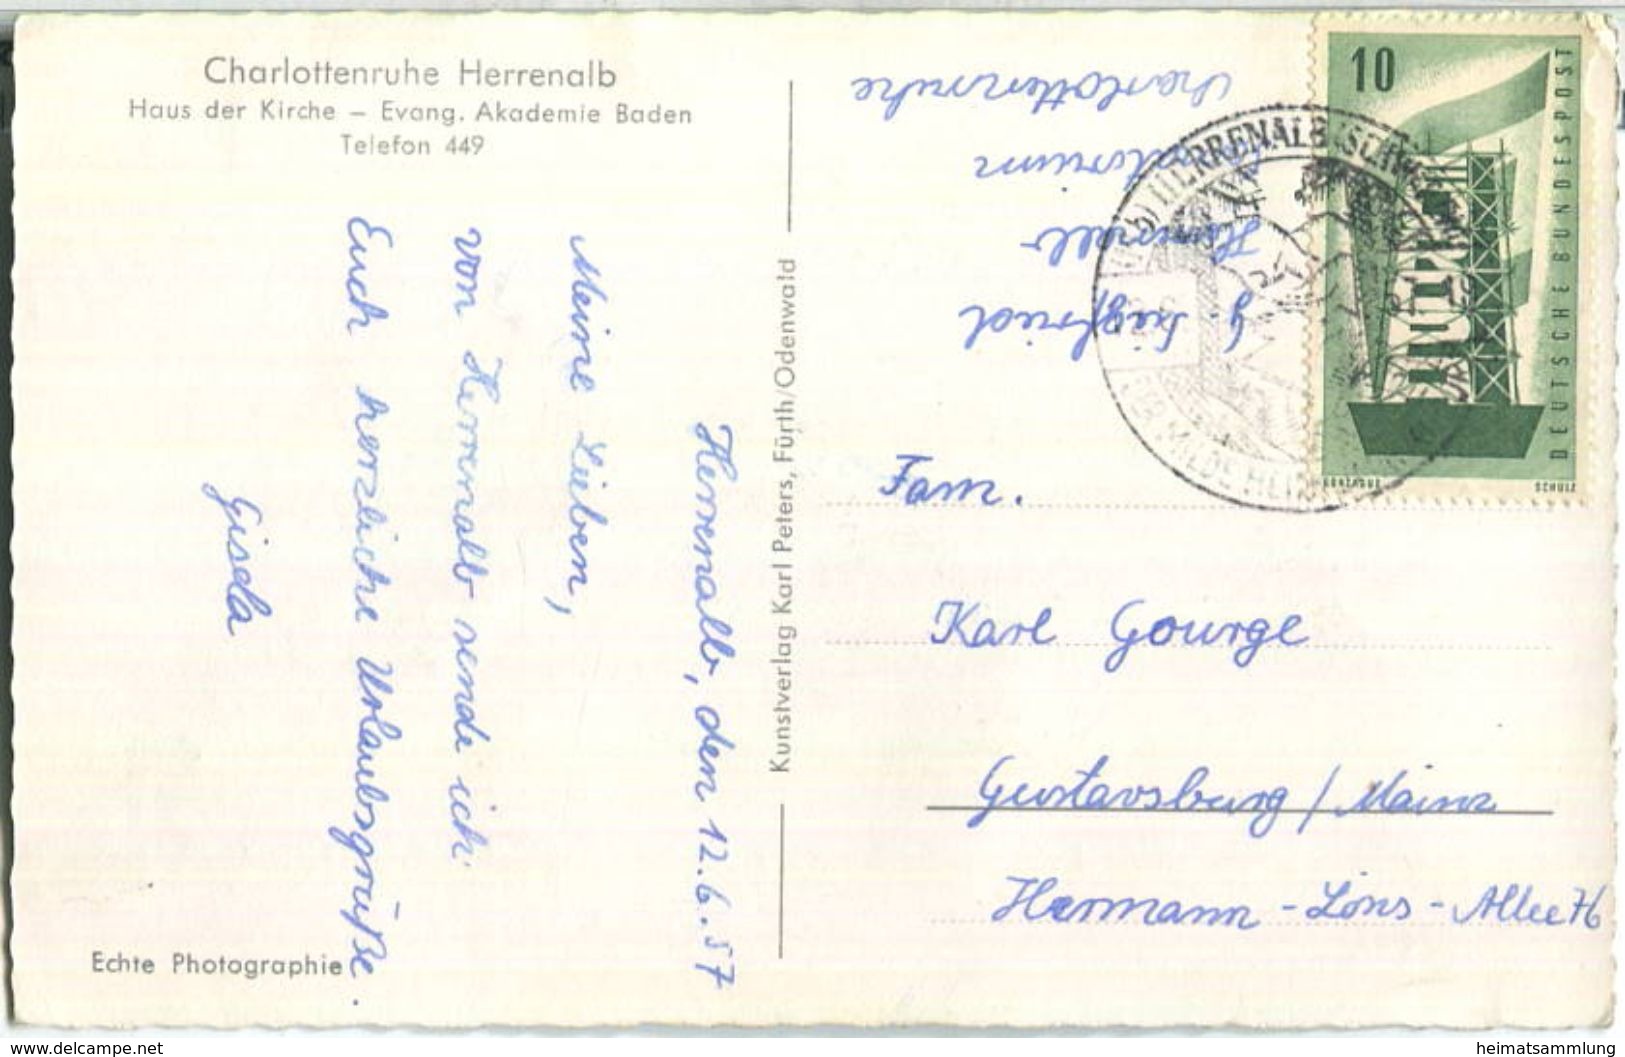 Charlottenruhe Herrenalb
Haus der Kirche – Evang. Akademie Baden
Telefon 449
Herrenalb, den 12.6.57
Meine Lieben,
von Herrenalb sende ich
Euch herzliche Urlaubsgrüße.
Gisela
Echte Photographie
Kunstverlag Karl Peters, Fürth/Odenwald
G. Siegfried
Herrenalb
Charlottenruhe
10
DEUTSCHE BUNDESPOST
HERRENALB (SCHW
Fam.
Karl Gourge
Gustavsburg / Mainz
Hermann-Löns-Allee 76
www.delcampe.net
heimatsammlung